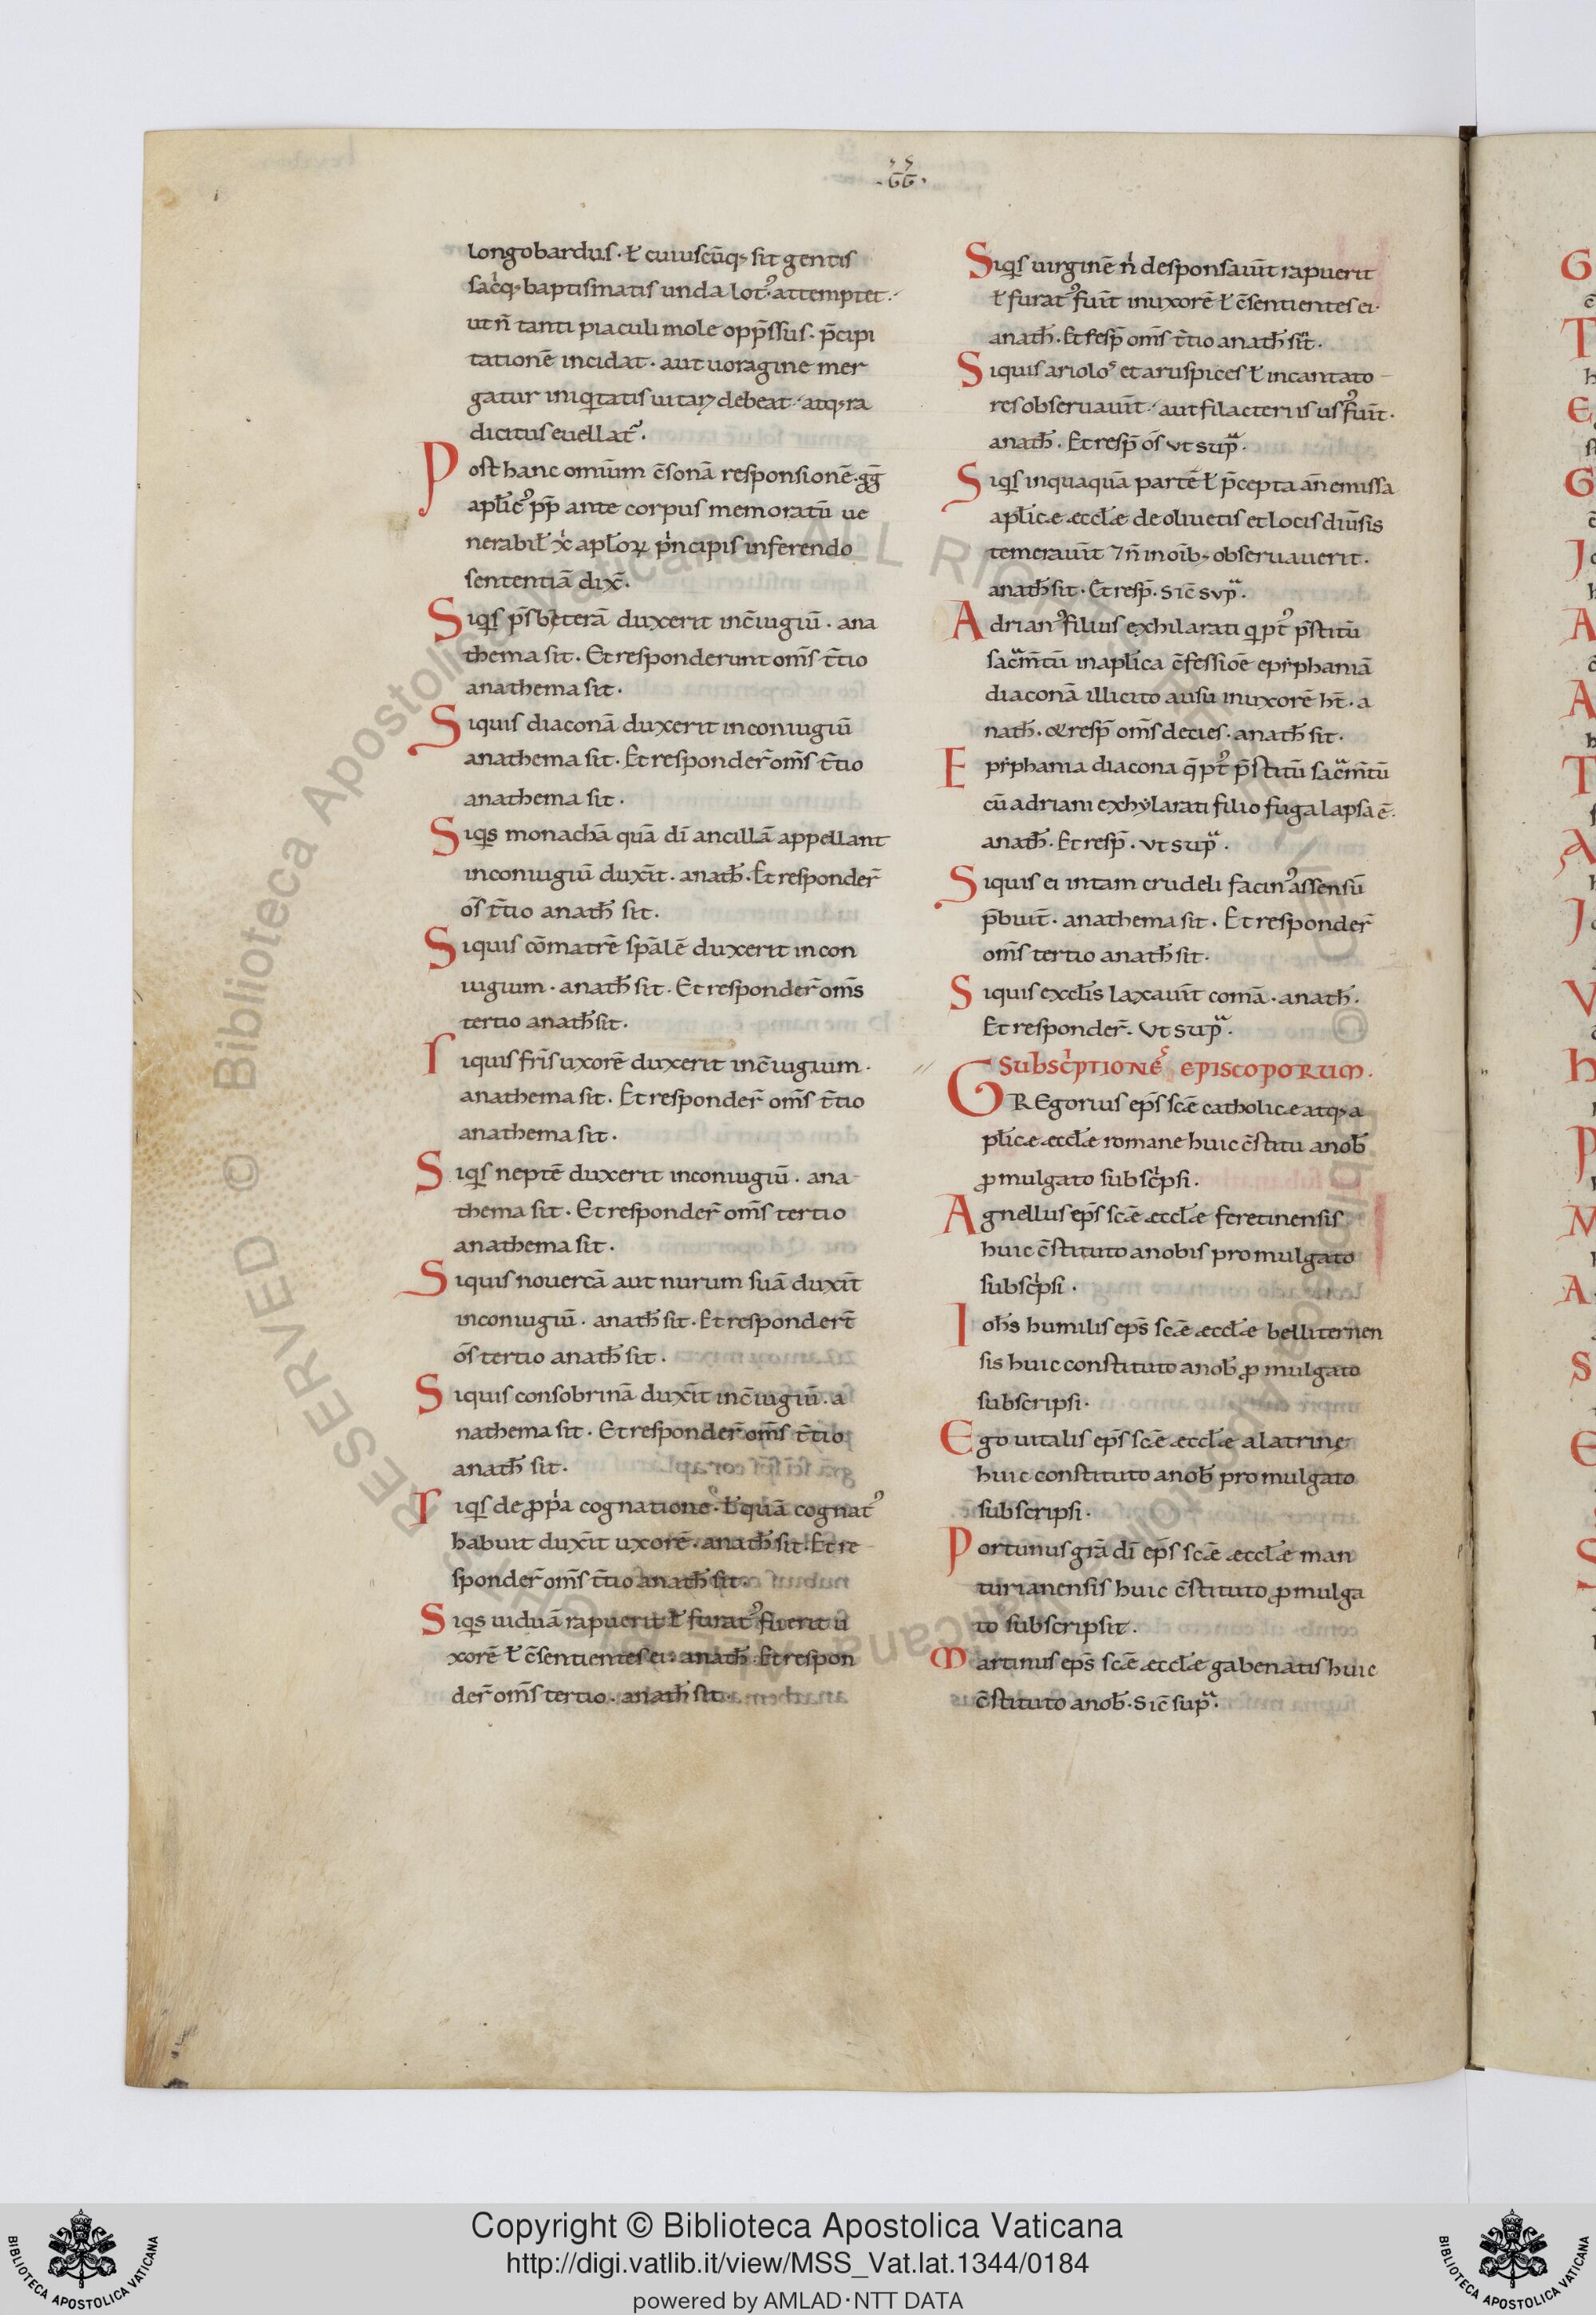 .GG.
longobardus· ł cuiuscūq; sit gentis
sac̓q; baptismatis unda lot᾿· attemptet·
ut n̄ tanti piaculi mole opp̄ssus· p̄cipi
tationē incidat· aut uoragine mer
gatur iniq̇tatis uitari debeat· atq; ra
dicitus euellat᾿·
Post hanc omium c̄sonā responsionē· gḡ
aplic᾿ pp̄ ante corpus memoratū ue
nerabił x̓ apłoꝝ p̓ncipis inferendo
sententiā dix̄·
Siqis p̄sbeterā duxerit inc̄iugiū· ana
thema sit· Et responderunt om̄s t̄tio
anathema sit·
Siquis diaconā duxerit inconiugiū
anathema sit· Et responder̄ om̄s t̄tio
anathema sit·
Siqis monachā quā dī ancillā appellant
inconiugiū dux̄it· anath̄· Et responder̄
ōs t̄tio anath̄ sit·
Siquis cōmatrē sp̄alē duxerit incon
iugium· anath̄ sit· Et responder̄ om̄s
tertio anath̄ sit·
Siquis fr̄is uxorē duxerit inc̄iugium·
anathema sit· Et responder̄ om̄s t̄tio
anathema sit·
Siqis neptē duxerit inconiugiū· ana
thema sit· Et responder̄ om̄s tertio
anathema sit·
Siquis nouercā aut nurum suā dux̄it
inconiugiū· anath̄ sit· Et respondert̄
ōs tertio anath̄ sit·
Siquis consobrinā dux̄it inc̄iugiū· a
nathema sit· Et responder̄ om̄s t̄tio
anath̄ sit·
Siqis de ꝓp̓a cognatione· ł quā cognat᾿
habuit dux̄it uxorē· anath̄ sit· Et re
sponder̄ om̄s t̄tio anath̄ sit·
Siqis uiduā rapuerit ł furat᾿ fuerit u
xorē ł c̄sentientes ei· anath̄· Et respon
der̄ om̄s tertio· anath̄ sit·
Siqis uirginē n̓ desponsauīt rapuerit
ł furat᾿ fuīt inuxorē ł c̄sentientes ei·
anath̄· Et resp̄ om̄s t̄tio anath̄ sit·
Siquis ariolos et aruspices ł incantato
res obseruauīt· aut filacteriis us᾿ fuīt·
anath̄· Et resp̄ ōs ut sup̄·
Siqis inquaquā partē ł p̄cepta an̄ emissa
aplicæ æccłæ de oliuetis et locis diūsis
temerauīt 7 n̄ inoīb; obseruauerit·
anath̄ sit· Et resp̄· sic̄ sup̄·
Adrian᾿ filius exhilarati q pt̄᾿ p̄stitū
sac̄m̄tū inaplica c̄fessiōe epip̓haniā
diaconā illicito ausu inuxorē ht̄· a
nath̄· & resp̄ om̄s decies· anath̄ sit·
Epip̓hania diacona q̄ pt̄᾿ p̄stitū sac̄m̄tū
cū adriani exhylarati filio fuga lapsa ē·
anath̄· Et resp̄· ut sup̄·
Siquis ei intam crudeli facin᾿ assensū
p̄buit· anathema sit· Et responder̄
om̄s tertio anath̄ sit·
Siquis excłis laxauīt comā· anath̄·
Et responder̄· ut sup̄·
Subsc̓ptiones episcoporum·
GREgorius ep̄s sc̄e catholicæ atq; a
plicæ æccłæ romane huic c̄stitu anob̄
ꝓmulgato subsc̓psi·
Agnellus ep̄s sc̄e æccłæ feretinensis
huic c̄stituto anobis promulgato
subsc̓psi·
Ioh̄s humilis ep̄s sc̄e æccłæ belliternen
sis huic constituto anob̄ ꝓmulgato
subscripsi·
Ego uitalis ep̄s sc̄e æccłæ alatrinę
huic constituto anob̄ promulgato
subscripsi·
Portunus grā dī ep̄s sc̄e æccłæ man
turianensis huic c̄stituto ꝓmulga
to subscripsit·
Martinus ep̄s sc̄e æccłæ gabenatis huic
c̄stituto anob̄· sic̄ sup̄·
Copyright © Biblioteca Apostolica Vaticana
http://digi.vatlib.it/view/MSS_Vat.lat.1344/0184
powered by AMLAD·NTT DATA
BIBLIOTECA APOSTOLICA VATICANA
BIBLIOTECA APOSTOLICA VATICANA